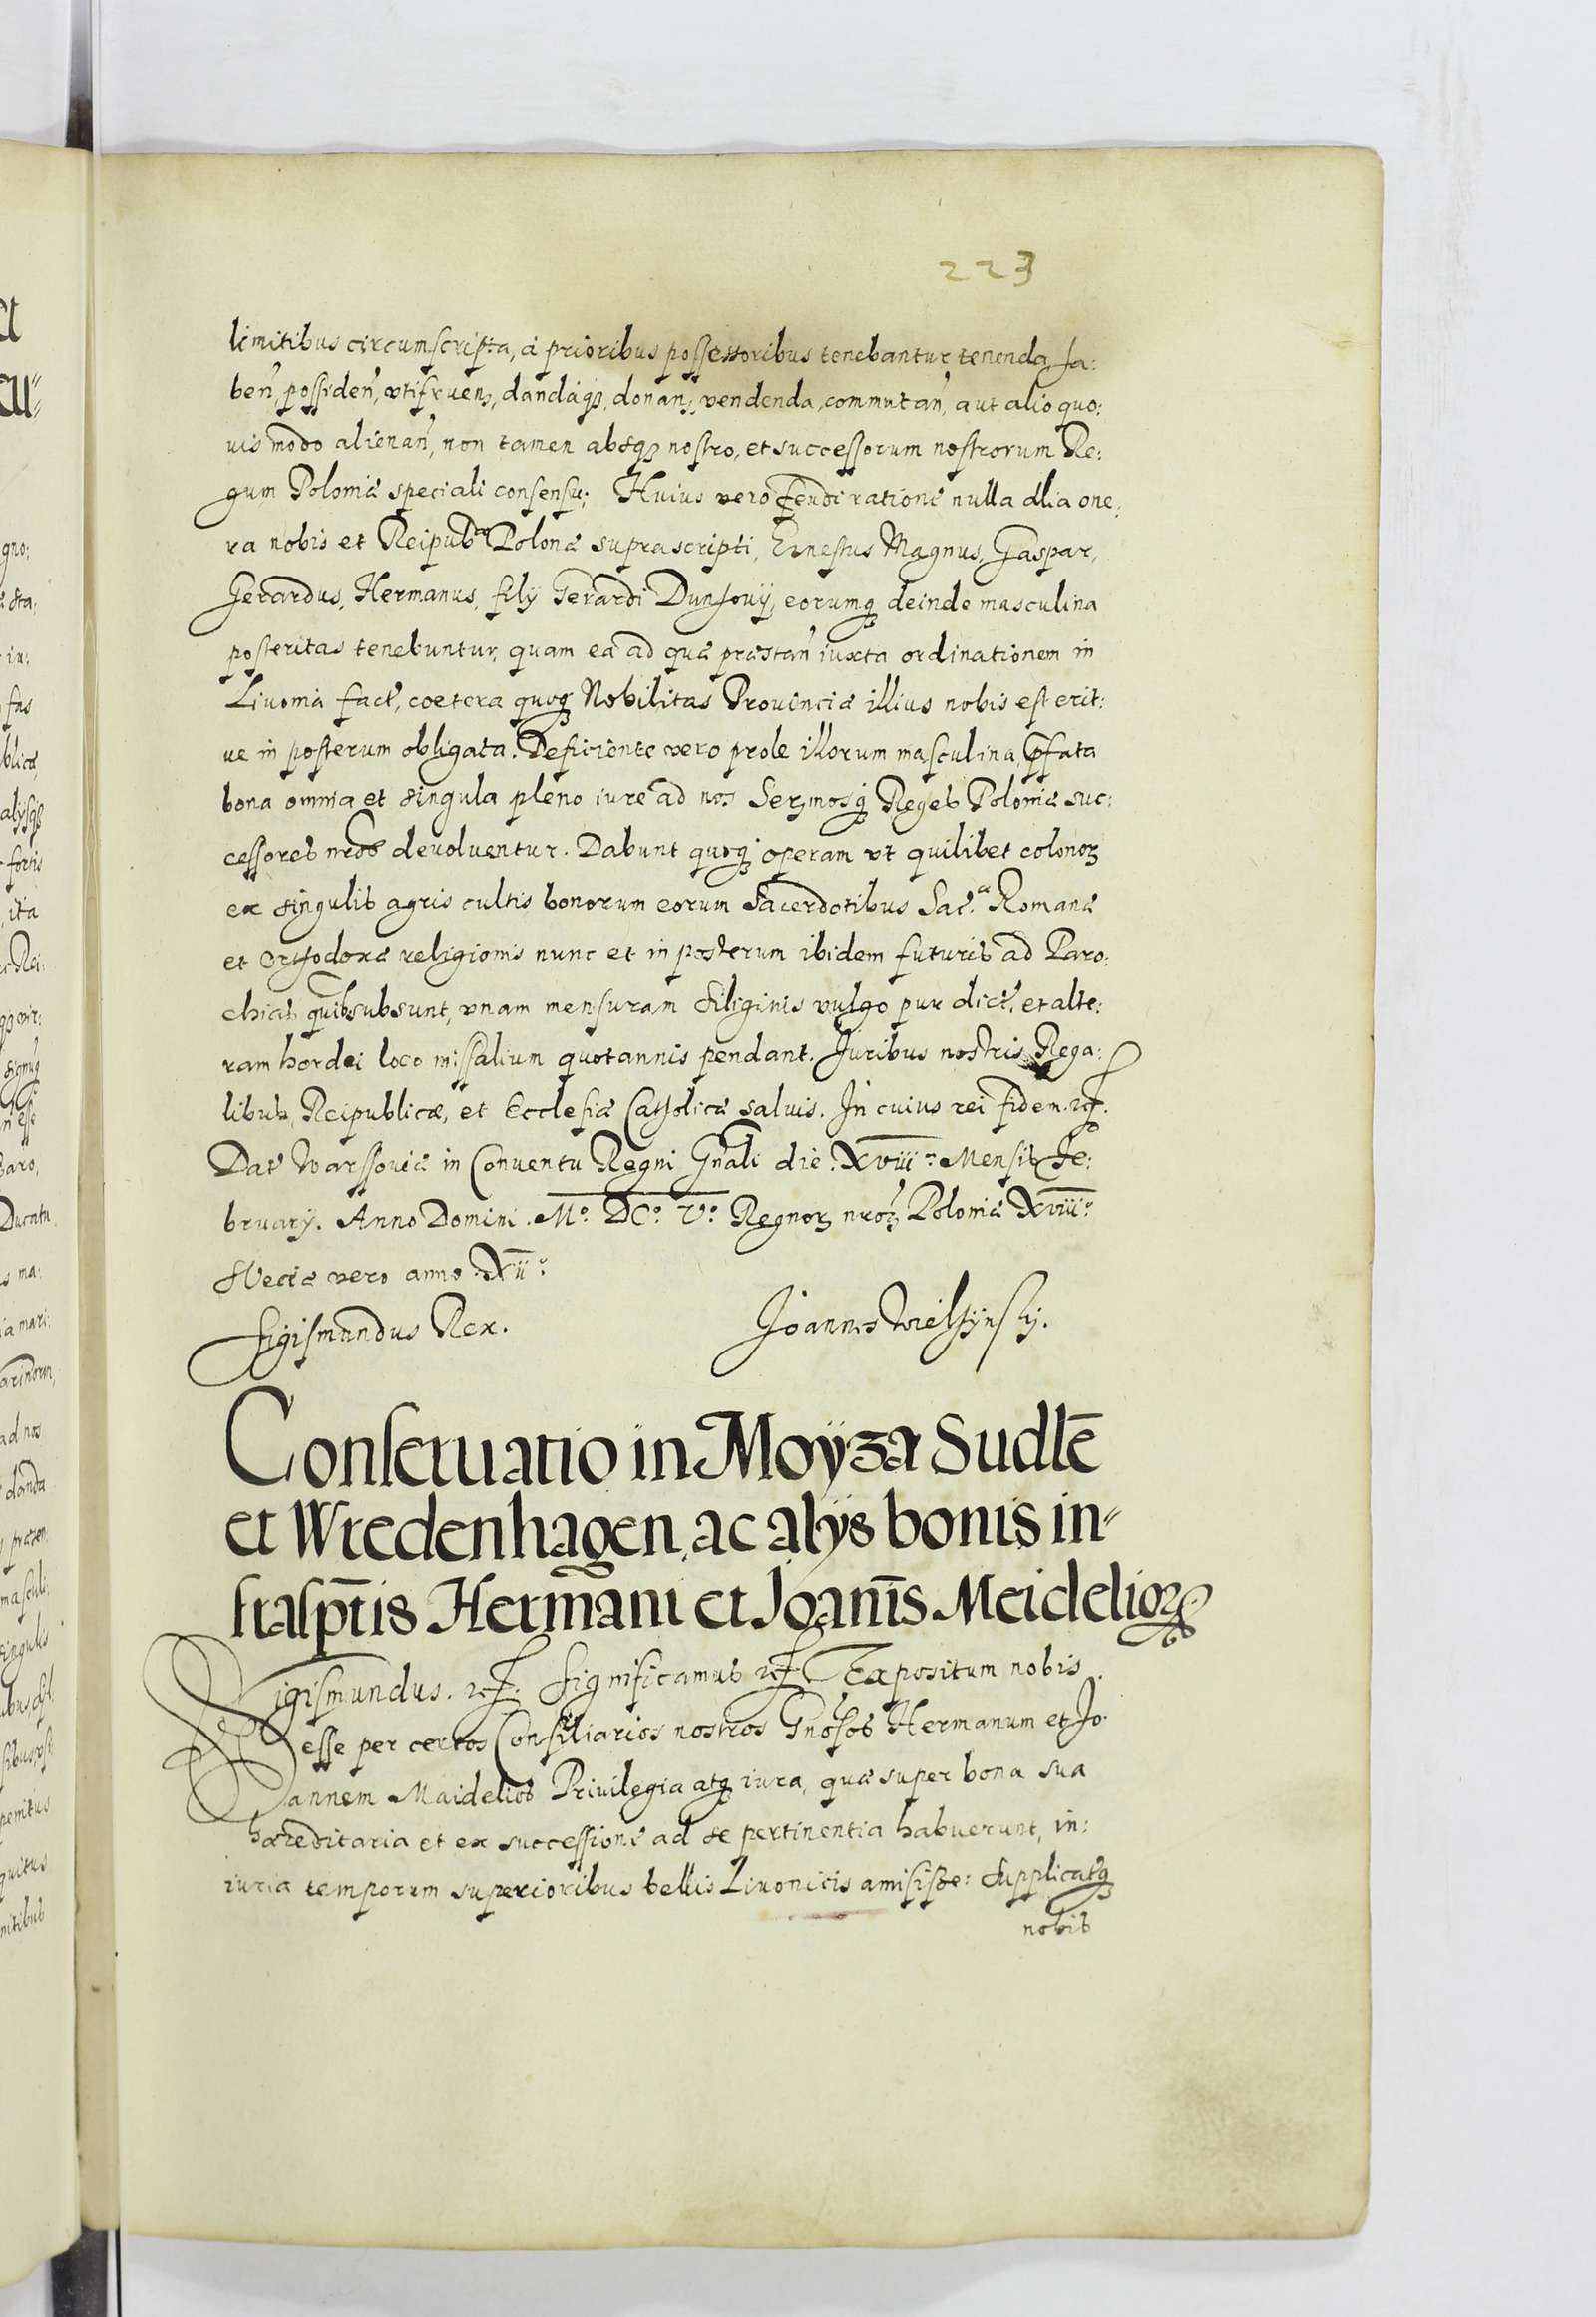 223
limitibus circumscripta, à prioribus possessoribus tenebantur, tenenda, ha:
ben, possiden, vtifruen, dandaq, donan, vendenda, commutan, aut alio quo:
uis modo alienan, non tamen absq nostro, et successorum nostrorum Re:
gum Poloniæ speciali consensu; Huius vero feudi ratione nulla alia one:
ra nobis et Reipubcæ Polonæ suprascripti, Ernestus Magnus, Gaspar,
Gerardus, Hermanus, filÿ Gerardi Dunhouÿ, eorumq deinde masculina
posteritas tenebuntur, quam ea ad quæ præstan iuxta ordinationem in
Livonia fact, coetera quoq Nobilitas Prouinciæ illius nobis est erit:
ue in posterum obligata. Deficiente vero prole illorum masculina, pfata
bona omnia et singula pleno iure ad nos Sermosq Reges Poloniæ suc:
cessores nros deuoluentur. Dabunt quoq operam vt quilibet colonoꝝ
ex singulis agris cultis bonorum eorum Sacerdotibus Sac.æ Romanæ
et Orthodoxæ religionis nunc et in posterum ibidem futuris ad Paro:
chias quibs subsunt, vnam mensuram siliginis vulgo pur dict, et alte:
ram hordei loco missalium quotannis pendant. Juribus nostris Rega:
libus, Reipublicæ, et Ecclesiæ Catholicæ saluis. In cuius rei fidem. etc.
Dat Warssouiæ in Conuentu Regni Gnali die. XVIII. Mensis Fe:
bruarÿ. Anno Domini. Mo. DCo. Vo. Regnoꝝ nroꝝ Poloniæ XVIIIo.
Sueciæ vero anno. XIIo.
Sigismundus Rex. Joannes Wielżÿnskÿ.
Conseruatio in Moÿza Sudlē
et Wredenhagen, ac alÿs bonis in=
frasptis Hermani et Joanis Meidelioꝝ.
Sigismundus. etc. Significamus etc. Expositum nobis
esse per certos Consiliarios nostros Gnosos Hermanum et Jo.
annem Maidelios Priuilegia atq iura, quæ super bona sua
hæreditaria et ex successione ad se pertinentia habuerunt, in:
iuria temporum superioribus bellis Liuonicis amisisse: Supplicatq
nobis